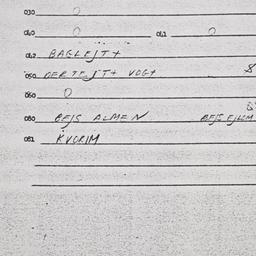 030 0
040 0 041 0
042 BAGLEJT +
050 DERTEJT + VOGT
060 0
080 BEJS ALMEN BEJS EJLOM
081 KVORIM